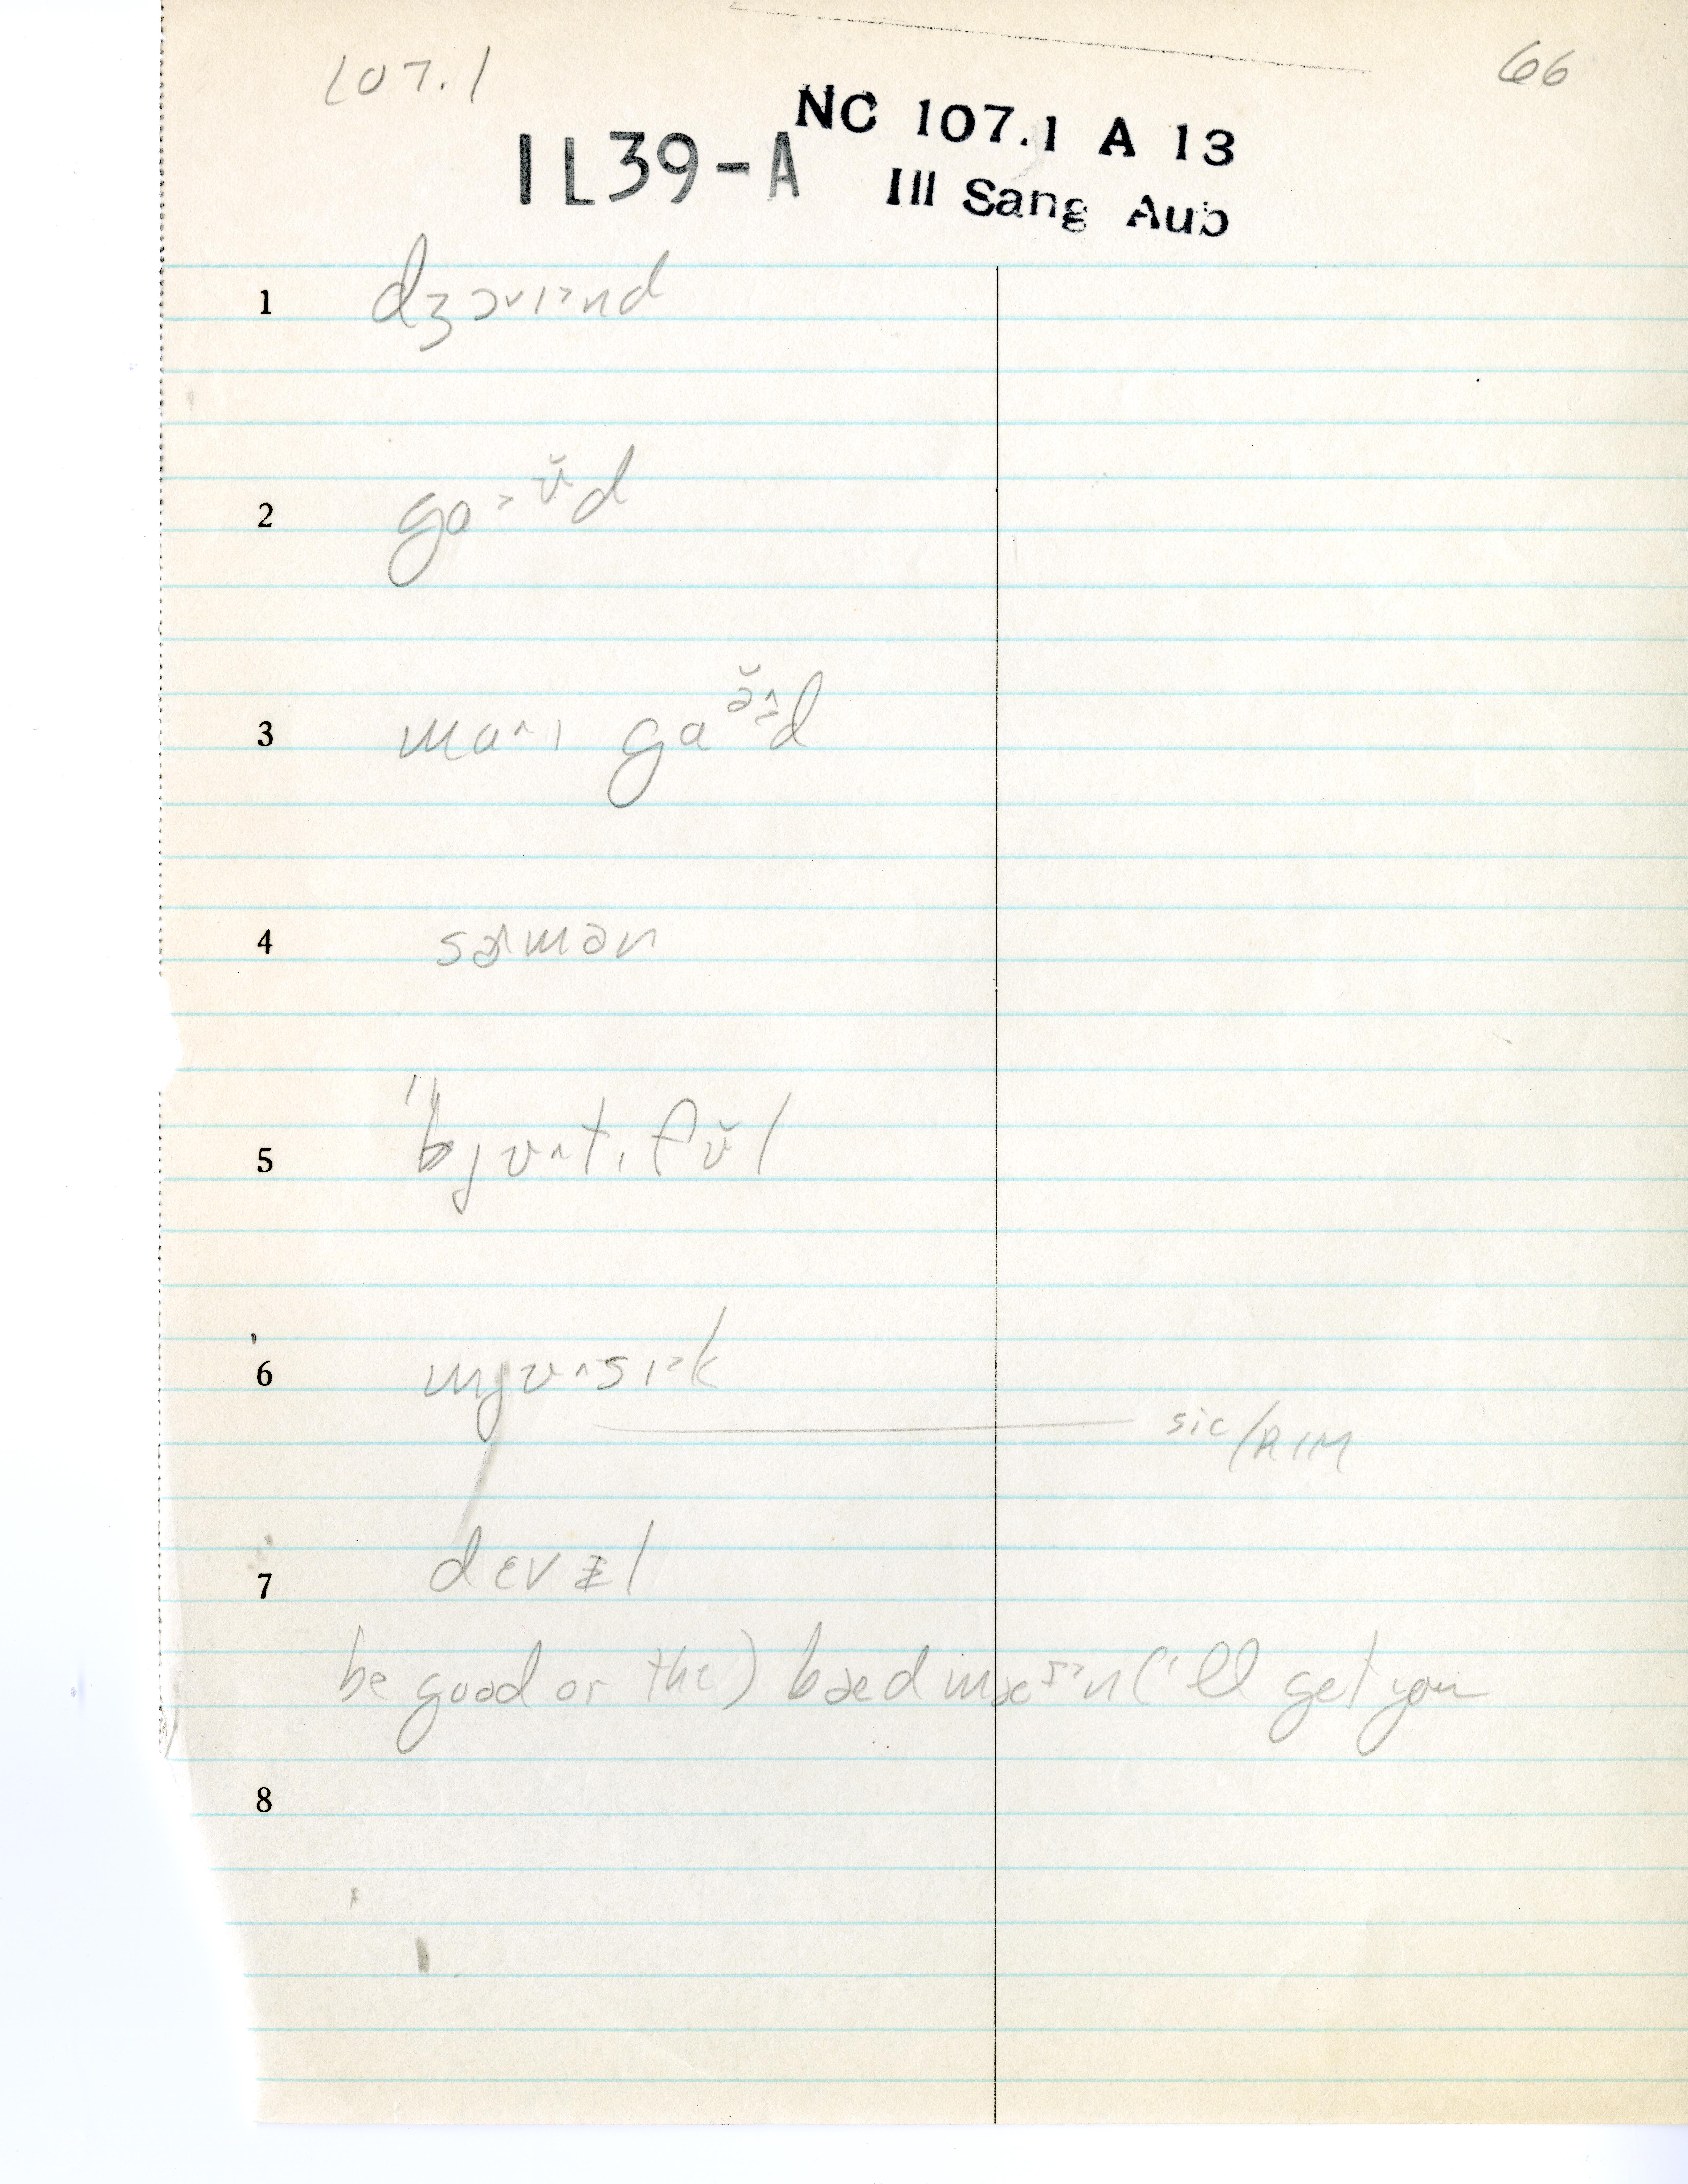 107.1
66
NC 107.1 A 13
IL39-A
Ill Sang Aub
1 dʒɔɪ˃nd
2 ga˃ʊ̆d
3 ma^ɪ gaə̆d
4 sɚmən
5 "bjʊ^tɪfʊ̆l
6 mjʊ^sɪ˃k
sic/RIM
7 dɛvl
be good or the) bæd mæn ('ll get you
8